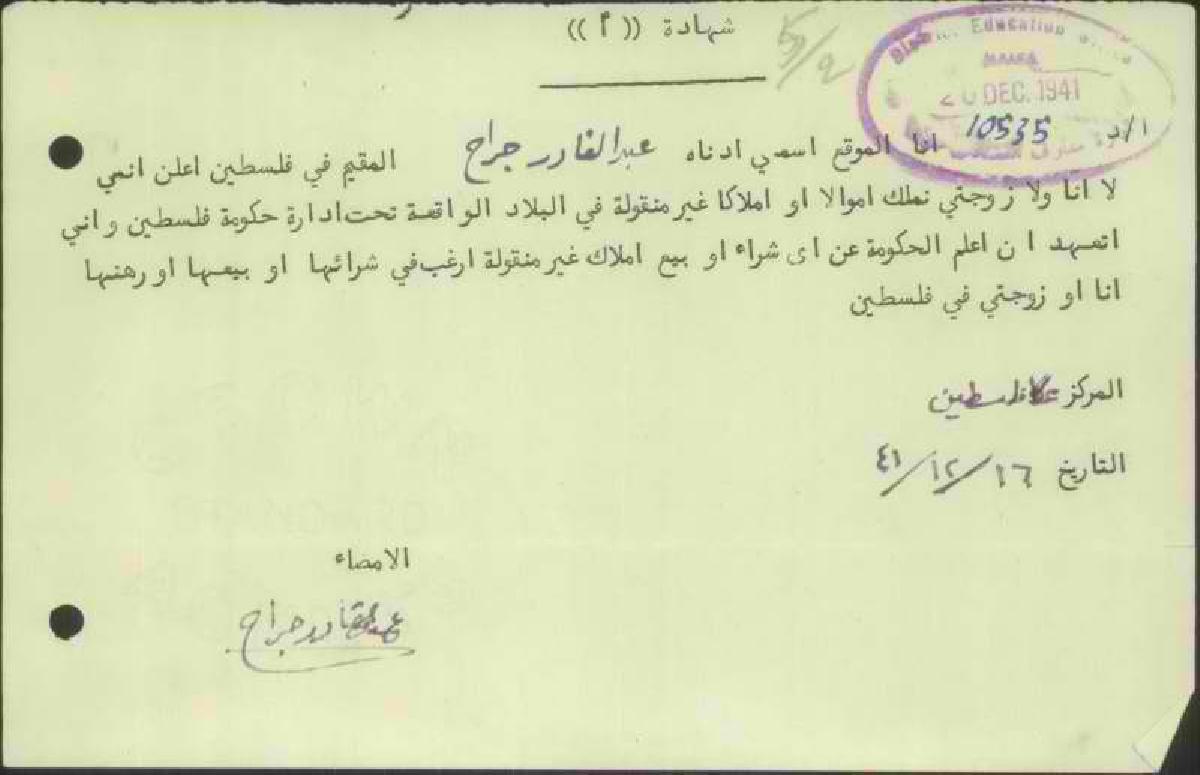 شهادة ((أ))
٥٩/٩
Education
2 0 DEC. 1941
ا/د 10535
انا الموقع اسمي ادناه عبد القادر جراح المقيم في فلسطين اعلن انمي
لا انا ولا زوجتي نملك اموالا او املاكا غير منقولة في البلاد الواقعة تحت ادارة حكومة فلسطين واني
اتعهد ان اعلم الحكومة عن اى شراء او بيع املاك غير منقولة ارغب في شرائها او بيعها او رهنها
انا او زوجتي في فلسطين
المركز فلسطين
التاريخ ١٦/١٢/٤١
الامضاء
عبد القادر جراح